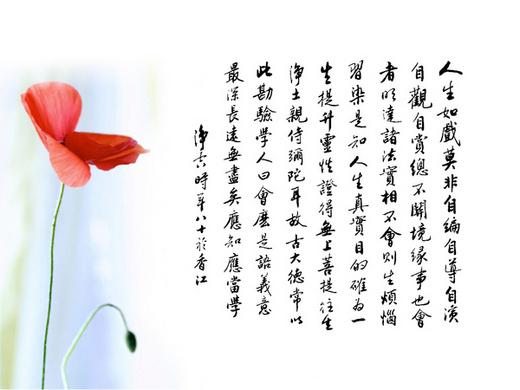 人生如戲莫非自編自導自演
自觀自賞總不關境緣事也會
者明達諸法實相不會則生煩惱
習染是知人生真實目的確為一
生提升靈性證得無上菩提往生
淨土親侍彌陀耳故古大德常以
此勘驗學人曰會麼是語義意
最深長遠無盡矣應知應當學
淨空時年八十於香江